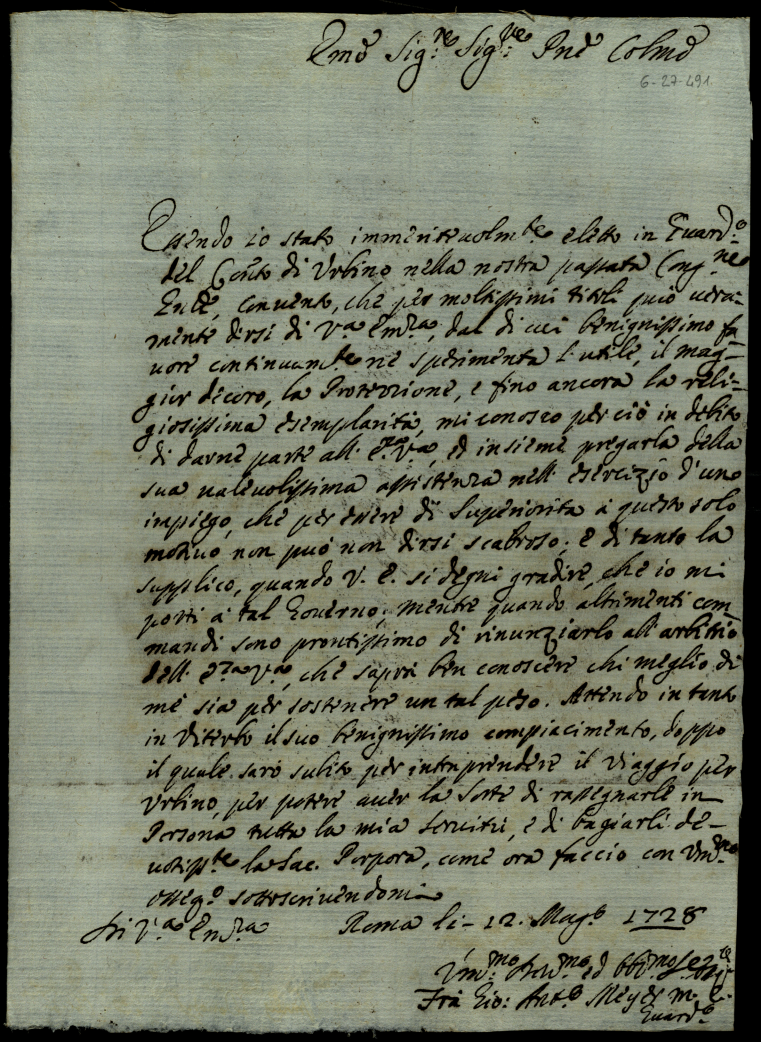 Emo Sig.re Sig.re Pne Colmo
6-27-491
Essendo io stato immeritevolm.te eletto in Guard.o
del Conto di Urbino nella nostra passata Cong.ne
Convento, che per moltissimi titoli può vera-
mente dirsi di V.a Em.za, dal di cui benignissimo fa
vore continuam.te ne sperimenta l'utile, il mag-
gior decoro, la Protezzione, e fino ancora la reli-
giosissima esemplarità, mi conosco perciò in debito
di darne parte all' E.za V.a, ed insieme pregarla della
sua valevolissima assistenza nell' esercizio d'uno
impiego, che per essere di Superiorità à questo solo
motivo non può non dirsi scabroso; e di tanto la
supplico, quando V. E. si degni gradire, che io mi
porti à tal Governo; mentre quando altrimenti com-
mandi sono prontissimo di rinunziarlo all' arbitrio
dell' E.za V.a, che saprà ben conoscere chi meglio di
me sia per sostenere un tal peso. Attendo in tanto
in Viterbo il suo benignissimo compiacimento, doppo
il quale sarò subito per intraprendere il viaggio per
Urbino, per potere aver la sorte di rassegnarle in
Persona tutta la mia servitù, e di bagiarli de-
votiss.te la Sac. Porpora, come ora faccio con Um.mo
osseq.o sottoscrivendomi
Di V.a Em.za Roma li- 12. Mag.o 1728
Um.mo Dev.mo ed Obb.mo Se
Fra Gio: Ant.o Meyer m. C.
Guard.o